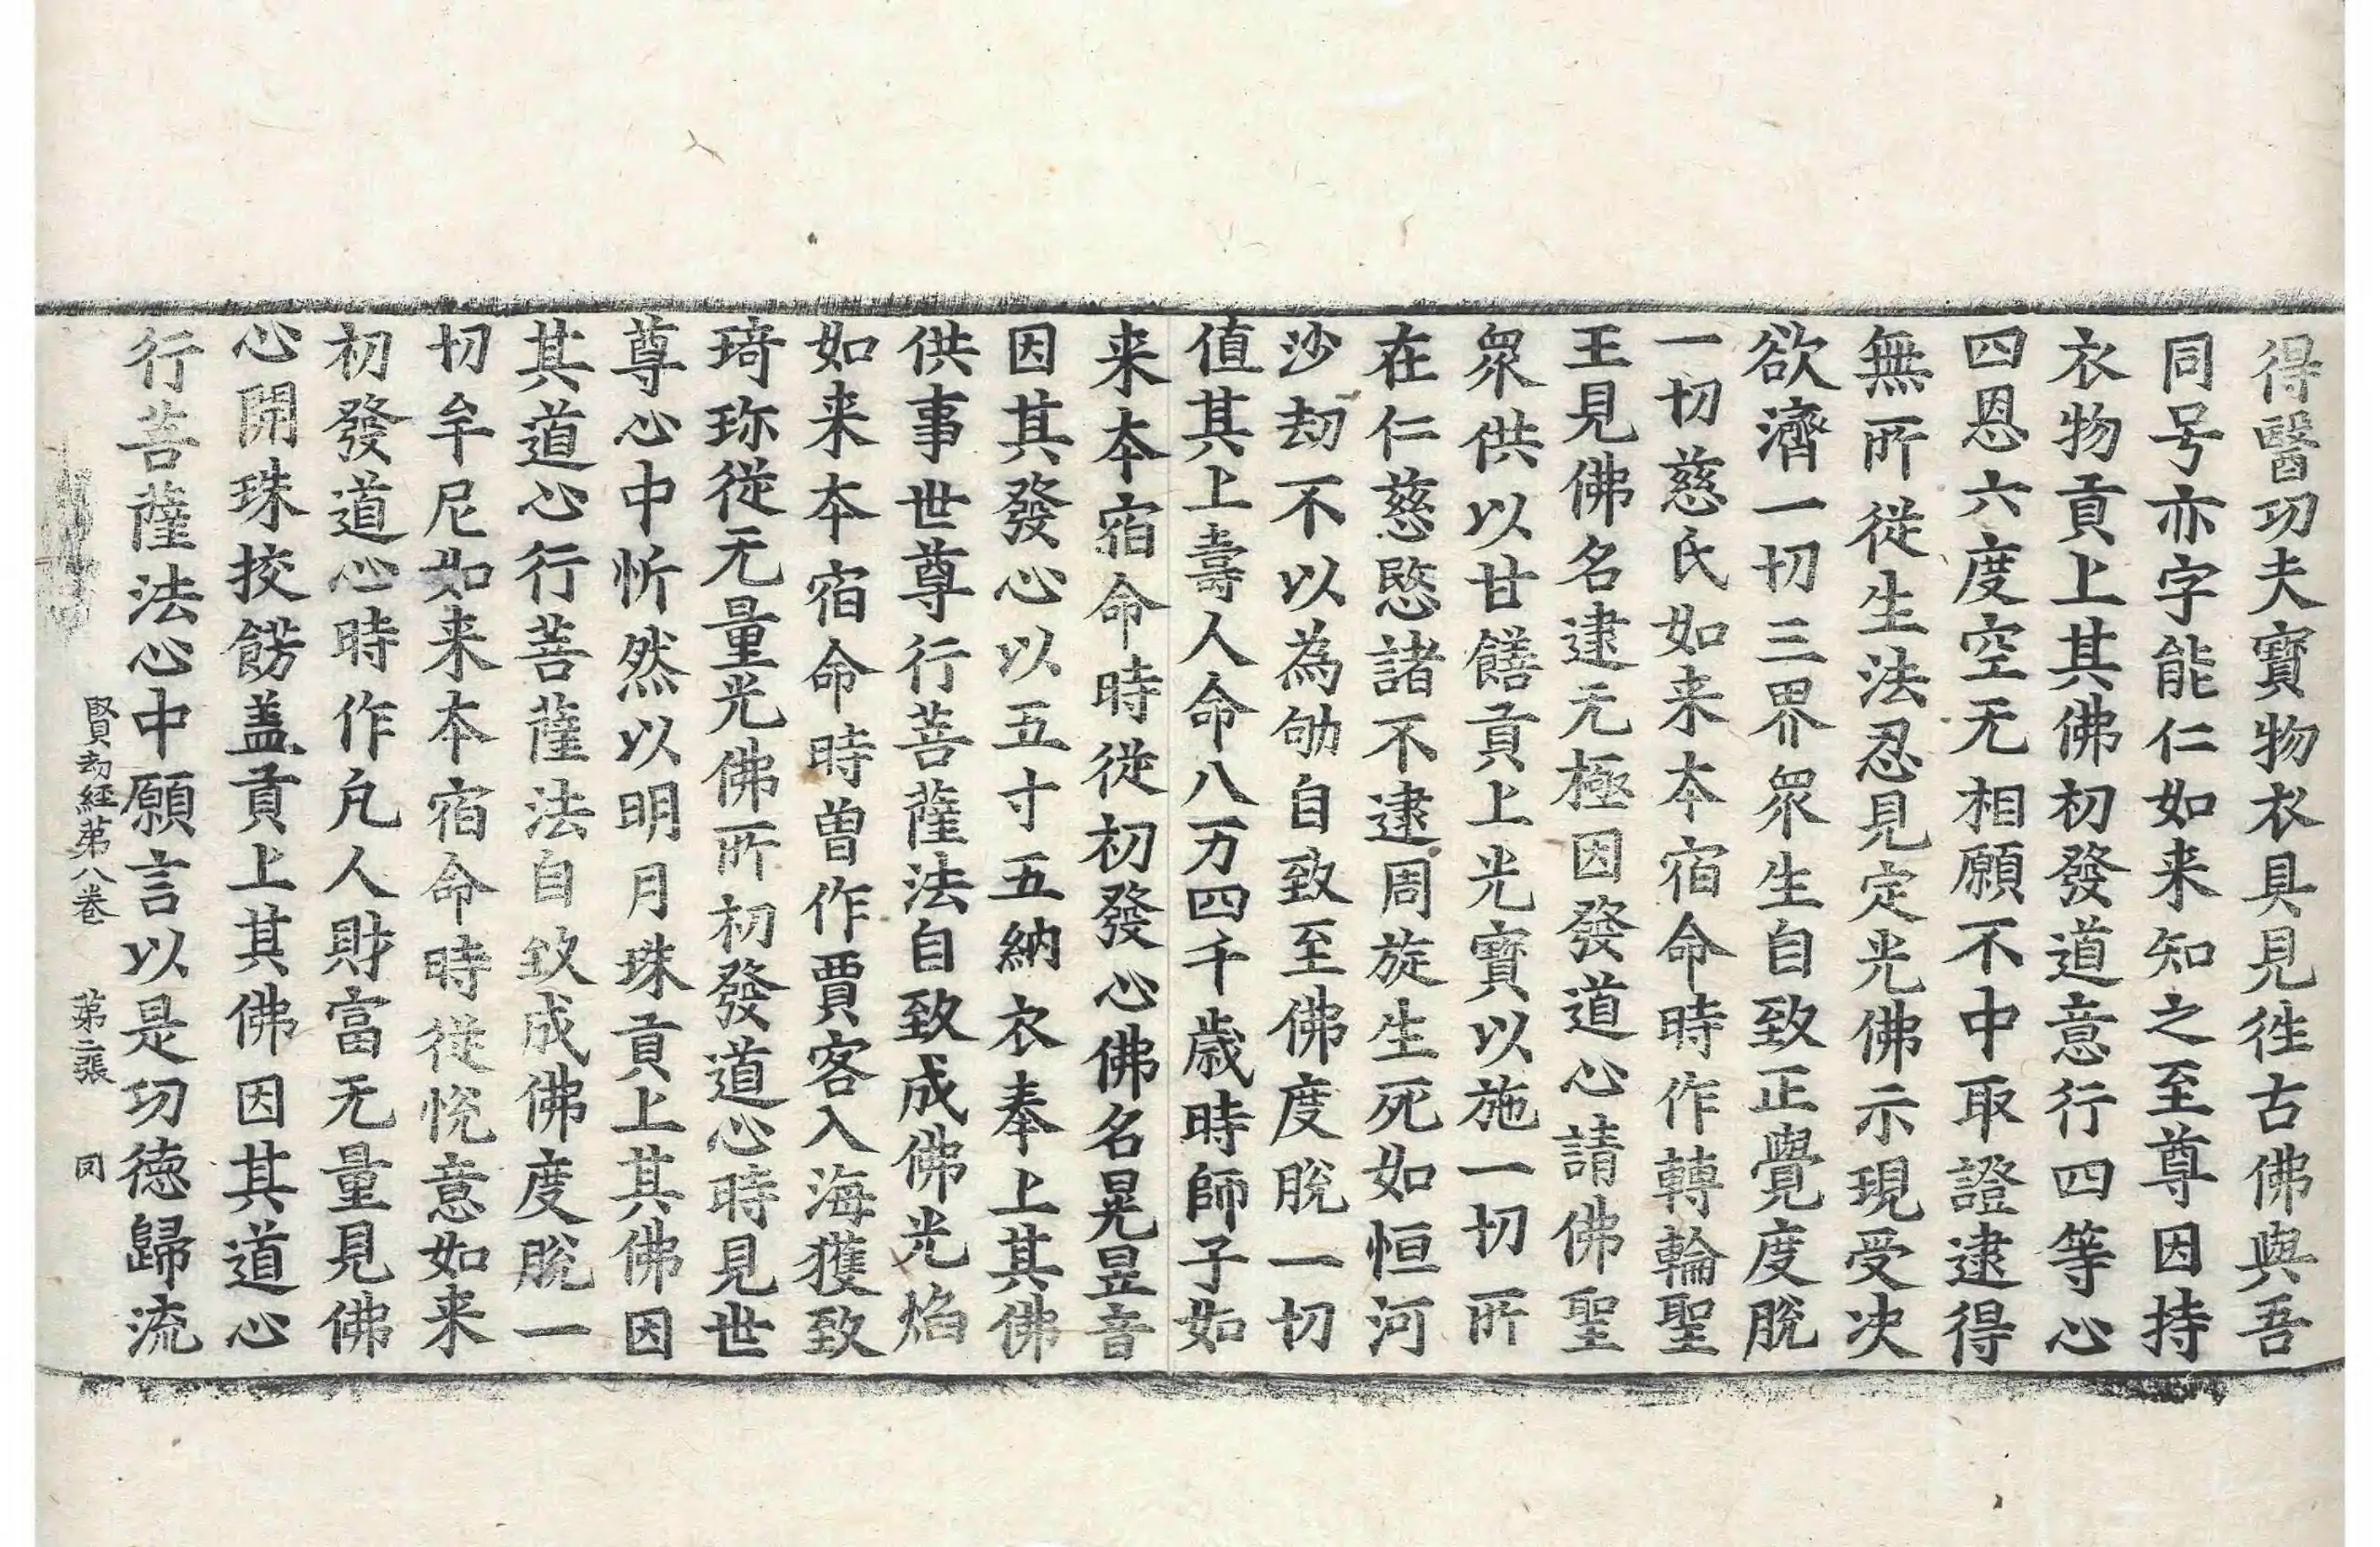 得醫功夫寶物衣具見徃古佛與吾
同号亦字能仁如来知之至尊因持
衣物貢上其佛初發道意行四等心
四恩六度空无相願不中取證逮得
無所從生法忍見定光佛示現受决
欲濟一切三界衆生自致正覺度脫
一切慈氏如来本宿命時作轉輪聖
王見佛名逮无極因發道心請佛聖
衆供以甘饍貢上光寶以施一切所
在仁慈愍諸不逮周旋生死如恒河
沙劫不以為劬自致至佛度脫一切
值其上壽人命八万四千歳時師子如
来本宿命時從初發心佛名晃昱音
因其發心以五寸五納衣奉上其佛
供事世尊行菩薩法自致成佛光焰
如来本宿命時曽作賈客入海獲致
琦珎從无量光佛所初發道心時見世
尊心中忻然以明月珠貢上其佛因
其道心行菩薩法自致成佛度脫一
切牟尼如来本宿命時從悅意如来
初發道心時作凢人財富无量見佛
心開珠挍餝盖貢上其佛因其道心
行菩薩法心中願言以是功徳歸流
賢劫經第八卷 第二張 同